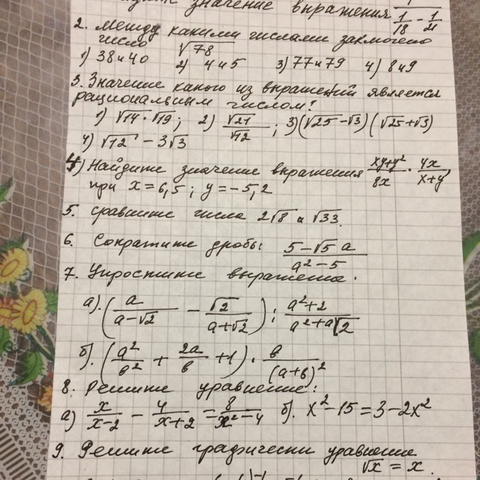 значение выражения 1/(1/18 - 1/21)
2. Между какими числами заключено
число √78
1) 38 и 40 2) 4 и 5 3) 77 и 79 4) 8 и 9
3. Значение какого из выражений является
рациональным числом?
1) √14 · √19; 2) √21/√12; 3) (√25 - √3)(√25 + √3)
4) √12 - 3√3
4) Найдите значение выражения (xy+y²)/8x · 4x/(x+y)
при x = 6,5; y = -5,2
5. Сравните числа 2√8 и √33.
6. Сократите дробь: (5 - √5 a)/(a² - 5)
7. Упростите выражение.
а). (a/(a-√2) - √2/(a+√2)) : (a²+2)/(a²+a√2)
б). (a²/b² + 2a/b + 1) · b/(a+b)²
8. Решите уравнение:
а) x/(x-2) - 4/(x+2) = 8/(x²-4) б). x² - 15 = 3 - 2x²
9. Решите графически уравнение
√x = x.